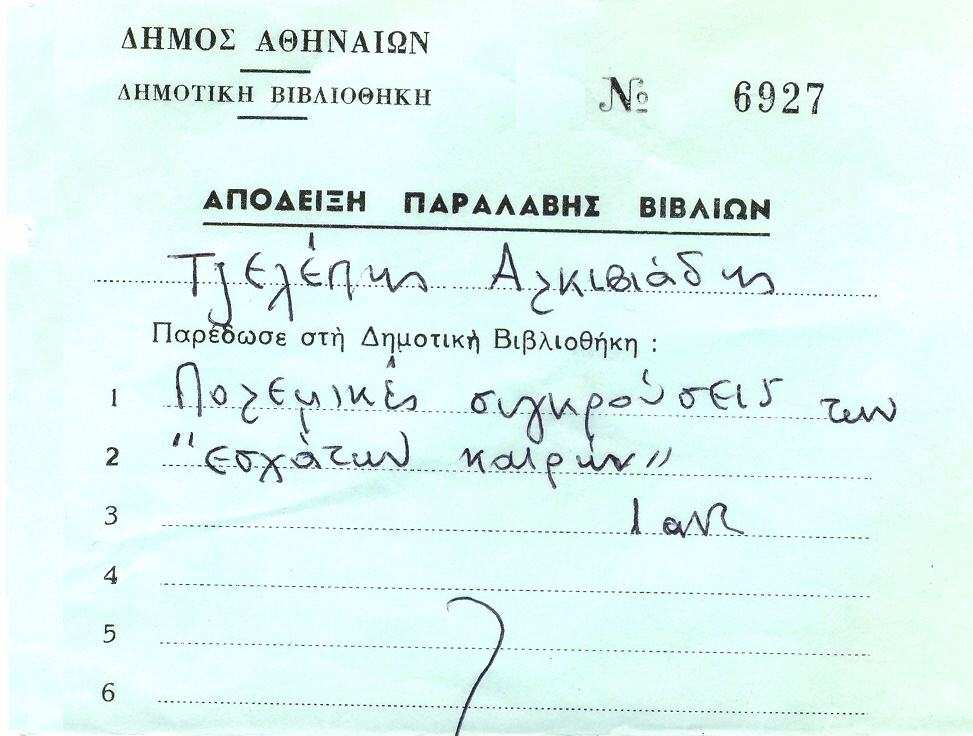 ΔΗΜΟΣ ΑΘΗΝΑΙΩΝ
ΔΗΜΟΤΙΚΗ ΒΙΒΛΙΟΘΗΚΗ
№ 6927
ΑΠΟΔΕΙΞΗ ΠΑΡΑΛΑΒΗΣ ΒΙΒΛΙΩΝ
Τζελέπης Αλκιβιάδης
Παρέδωσε στὴ Δημοτικὴ Βιβλιοθήκη :
1 Πολεμικές συγκρούσεις των
2 "εσχάτων καιρών"
3
4
5
6